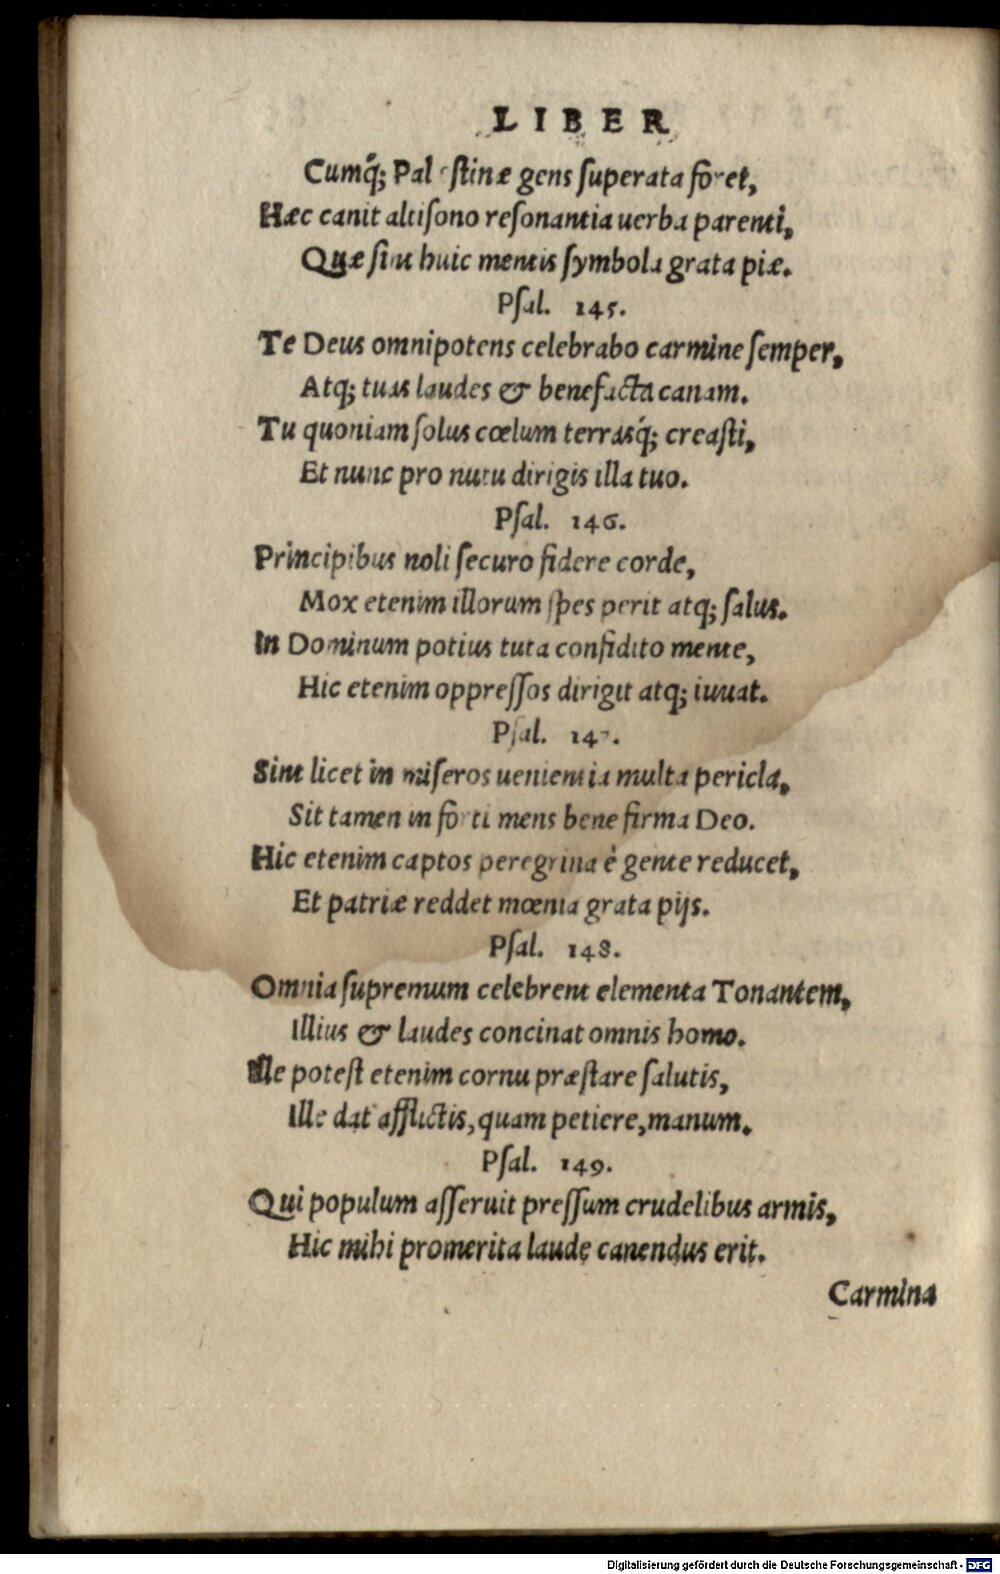 LIBER
Cumq́; Palestinæ gens superata foret,
Hæc canit altisono resonantia uerba parenti,
Quæ sint huic mentis symbola grata piæ.
Psal. 145.
Te Deus omnipotens celebrabo carmine semper,
Atq; tuas laudes & benefacta canam.
Tu quoniam solus cœlum terrasq́; creasti,
Et nunc pro nutu dirigis illa tuo.
Psal. 146.
Principibus noli securo fidere corde,
Mox etenim illorum spes perit atq; salus.
In Dominum potius tuta confidito mente,
Hic etenim oppressos dirigit atq; iuuat.
Psal. 147.
Sint licet in miseros uenientia multa pericla,
Sit tamen in forti mens bene firma Deo.
Hic etenim captos peregrina è gente reducet,
Et patriæ reddet mœnia grata pijs.
Psal. 148.
Omnia supremum celebrent elementa Tonantem,
Illius & laudes concinat omnis homo.
Ille potest etenim cornu præstare salutis,
Ille dat afflictis, quam petiere, manum.
Psal. 149.
Qui populum asseruit pressum crudelibus armis,
Hic mihi promerita laude canendus erit.
Carmina
Digitalisierung gefördert durch die Deutsche Forschungsgemeinschaft - DFG